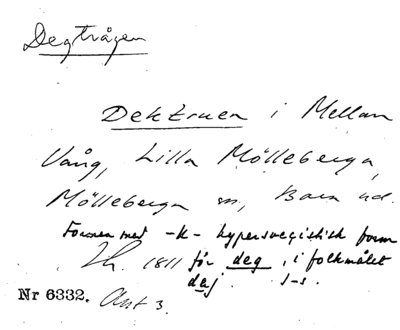 Degtrågen
Dektruen i Mellan
Vång, Lilla Mölleberga,
Mölleberga sn, Bara hd.
Formen med -k- hypersvecistisk form
Lh. 1811 för deg, i folkmålet
daj. J-s.
Nr 6332. Ant 3.